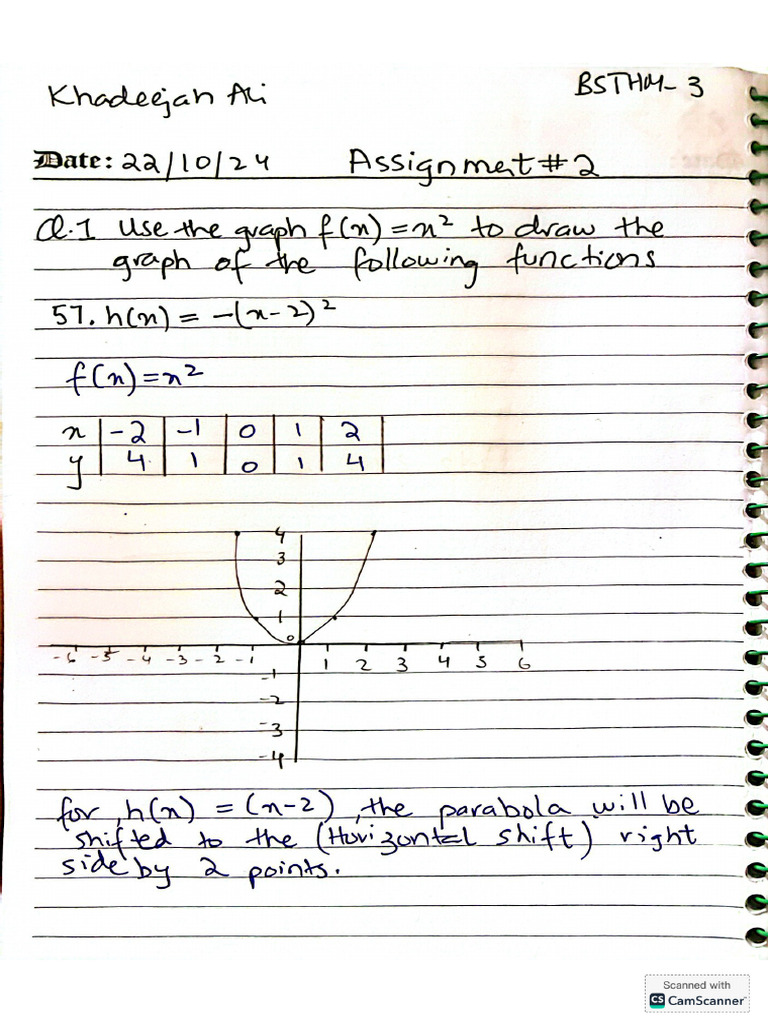 Khadeejah Ali
BSTHM-3
Date: 22/10/24 Assignment #2
Q.1 Use the graph f(x) = x² to draw the
graph of the following functions
57. h(x) = -(x-2)²
f(x) = x²
x | -2 | -1 | 0 | 1 | 2
y | 4 | 1 | 0 | 1 | 4
4
3
2
1
0
-6 -5 -4 -3 -2 -1 1 2 3 4 5 6
-1
-2
-3
-4
for h(x) = (x-2), the parabola will be
shifted to the (Horizontal shift) right
side by 2 points.
Scanned with
CS CamScanner